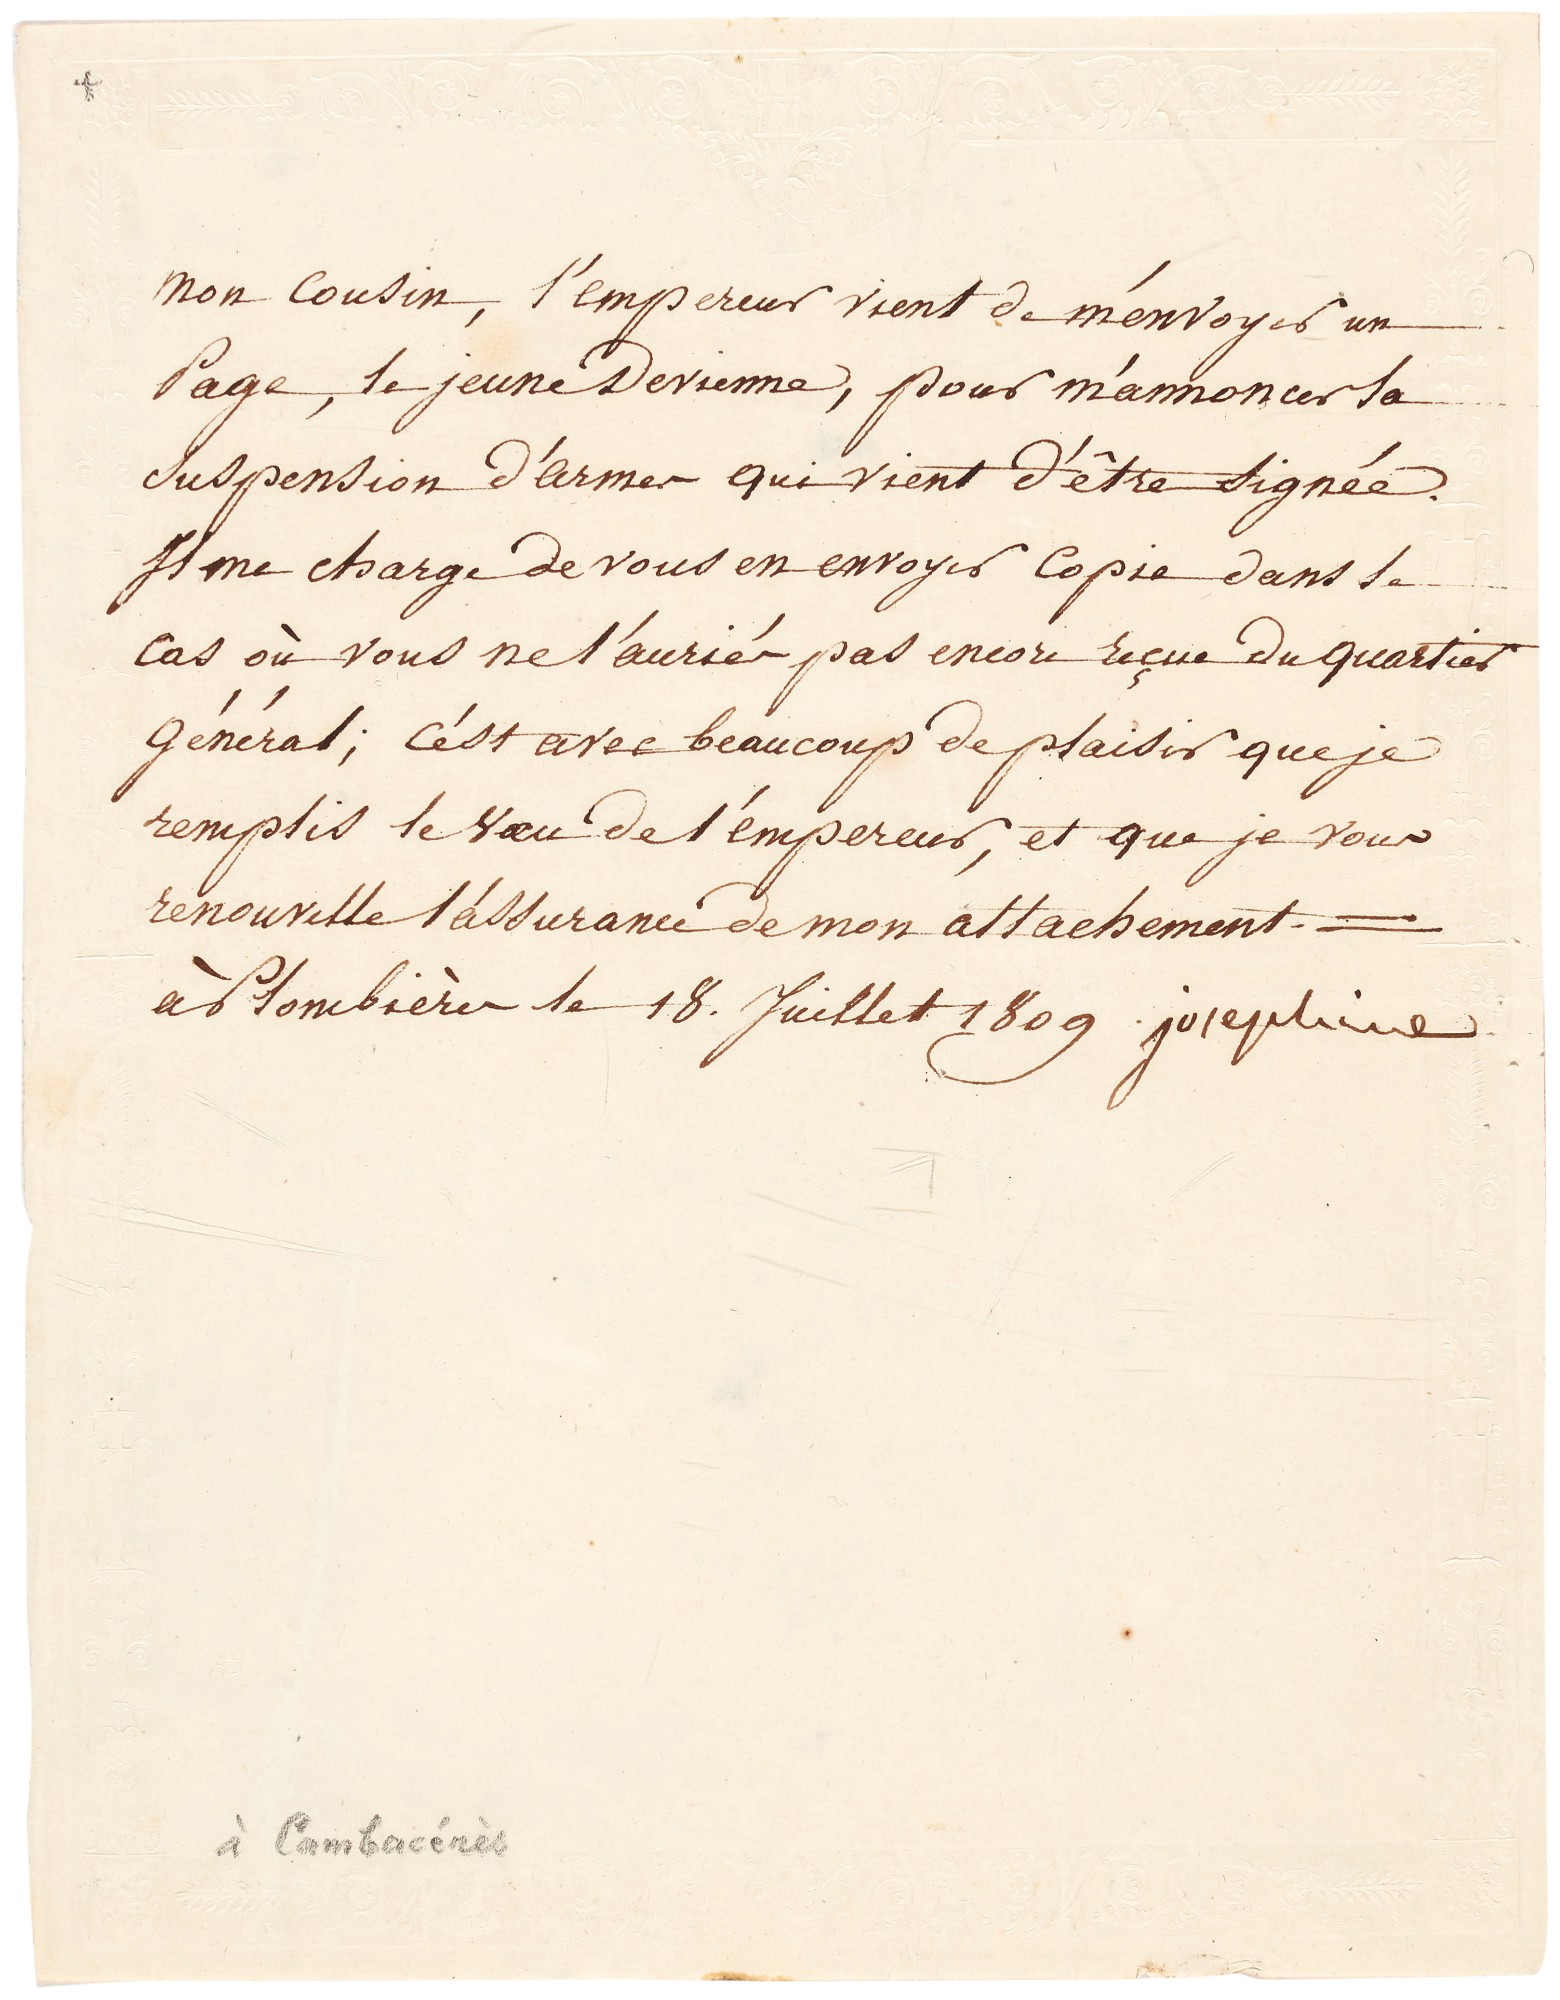 mon Cousin, l'empereur vient de m'envoyer un
Page, le jeune Devienne, pour m'annoncer la
suspension d'armes qui vient d'être signée.
Il me charge de vous en envoyer Copie dans le
cas où vous ne l'auriés pas encore reçue du quartier
général; c'ést avec beaucoup de plaisir que je
remplis le vœu de l'émpereur, et que je vous
renouvelle l'assurance de mon attachement. =
à Plombières le 18. Juillet 1809 josephine
à Cambacérès